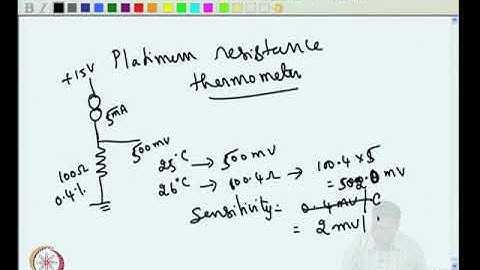 Platinum resistance
thermometer
+15V
5mA
500mV
100Ω
0.4%
25°C → 500mV
26°C → 100.4Ω → 100.4 x 5
= 502.0 mV
Sensitivity = 0.4 mV/°C
= 2mV/